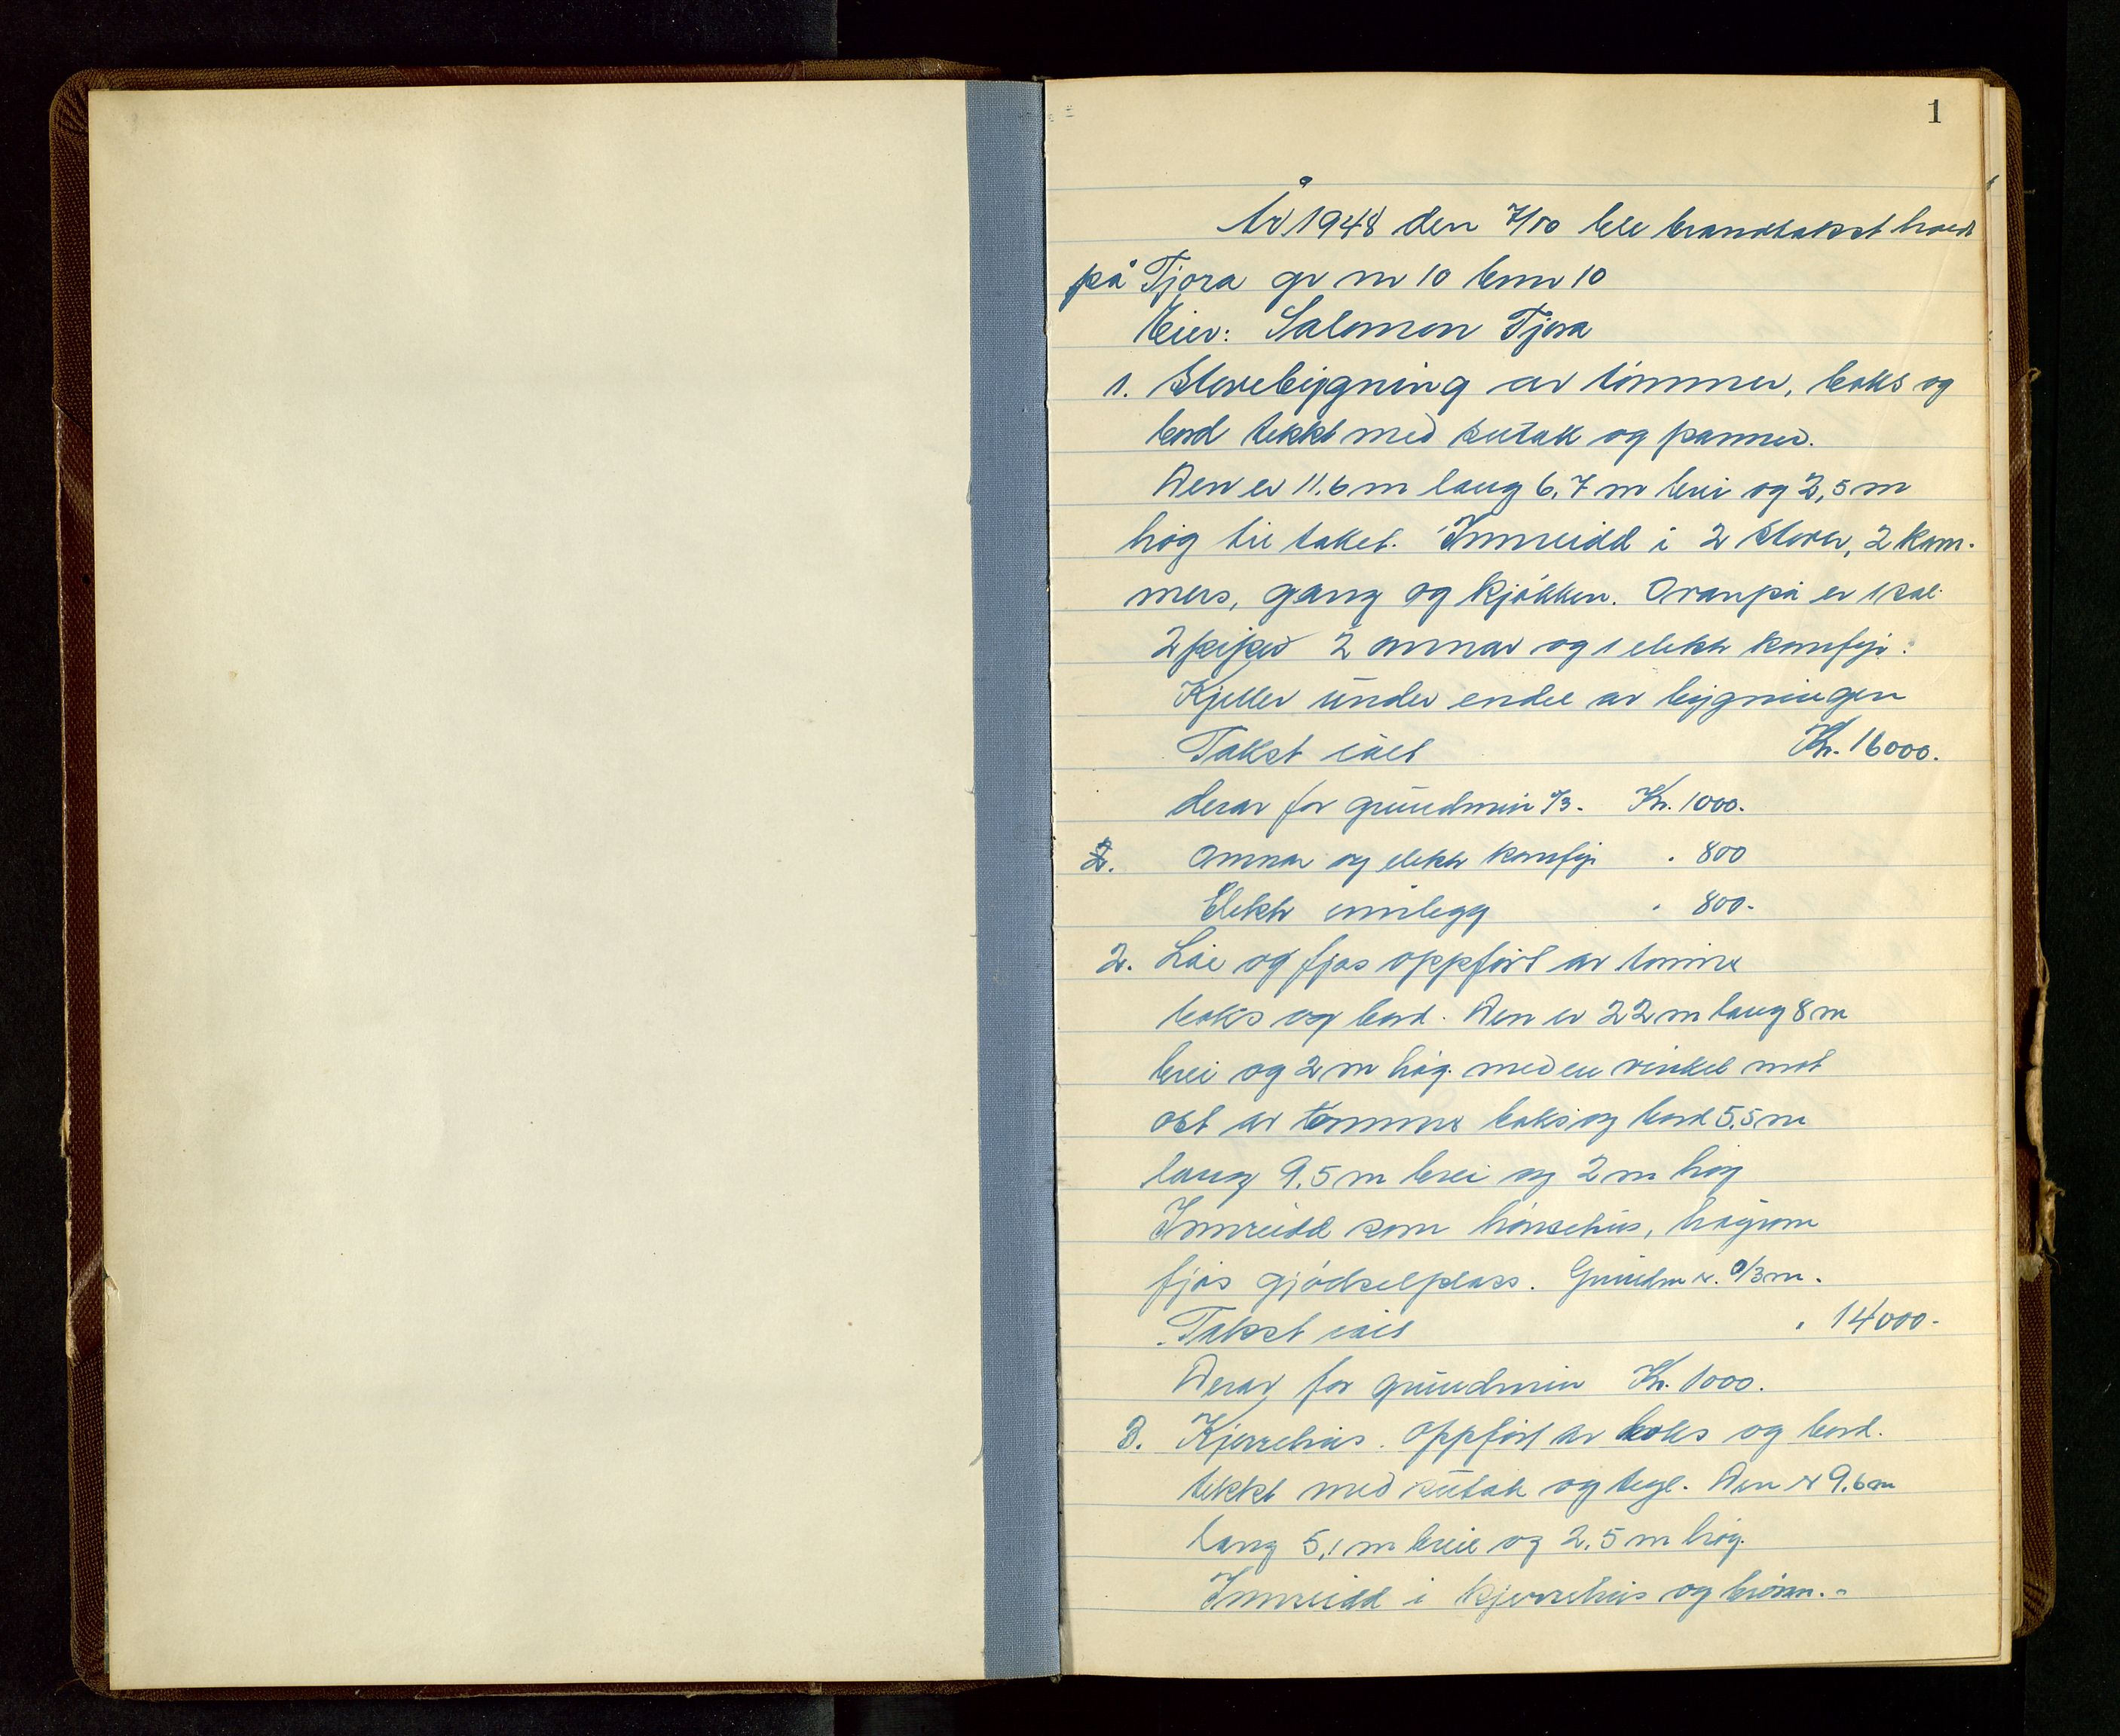 1
År 1948 den 7/10 ble branntakst havdt
på Tjora gr nr 10 br nr 10
Eier: Salomon Tjora
1. Stovebygning av tømmer, boks og
bord tekkt med sutak og panner.
Den er 11.6 m lang 6.7 m brei og 2,5 m
høg til taket. Innreidd i 2 stover, 2 kam-
mers, gang og kjøkken. Ovanpå er 1 sal.
2 piper 2 omnar og 1 elektr komfyr.
Kjeller under endel av bygningen
Takst ialt Kr. 16000.
derav for grundmur 1/3. Kr. 1000.
2. Omnar og elektr komfyr " 800
Elektr innlegg " 800.
2. Løe og fjøs oppført av tømmer
boks og bord. Den er 22 m lang 8 m
brei og 2 m høg. med en vinkel mot
øst av tømmer boks og bord 5.5 m
lang 9.5 m brei og 2 m høg
Innreidd som hønsehus, høyrom
fjøs gjødselplass. Grundm er. 0/3 m.
Takst ialt " 14000.
Derav for grundmur Kr. 1000.
3. Kjerrehus. oppført av boks og bord.
tekkt med sutak og tegl. Den er 9.6 m
lang 5,1 m brei og 2.5 m høg.
Innreidd i kjerrehus og brønn.-